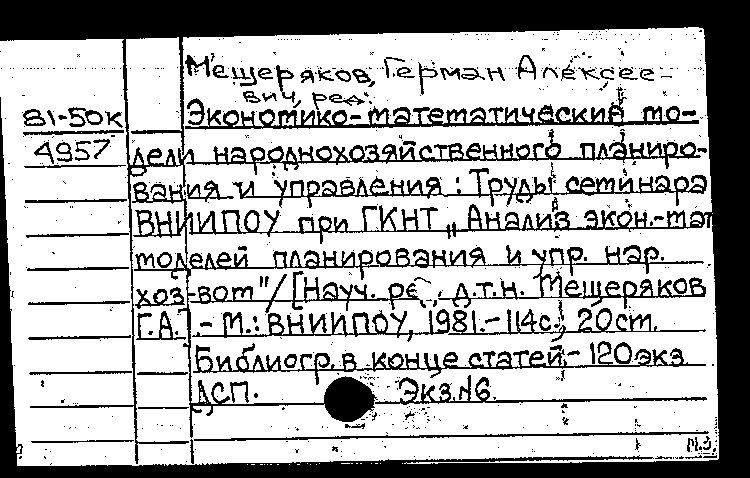 Мещеряков, Герман Алексее-
вич, ред.
81-50к Экономико-математический мо-
4957 дели народнохозяйственного планиро-
вания и управления : Труды семинара
ВНИИПОУ при ГКНТ „Анализ экон.-мат
моделей планирования и упр. нар.
хоз-вом"/[Науч. ре , д.т.н. Мещеряков
Г.А.].- М.: ВНИИПОУ, 1981.-114с.; 20см.
Библиогр. в конце статей.- 120экз
ДСП. Экз.№6.
М.З.